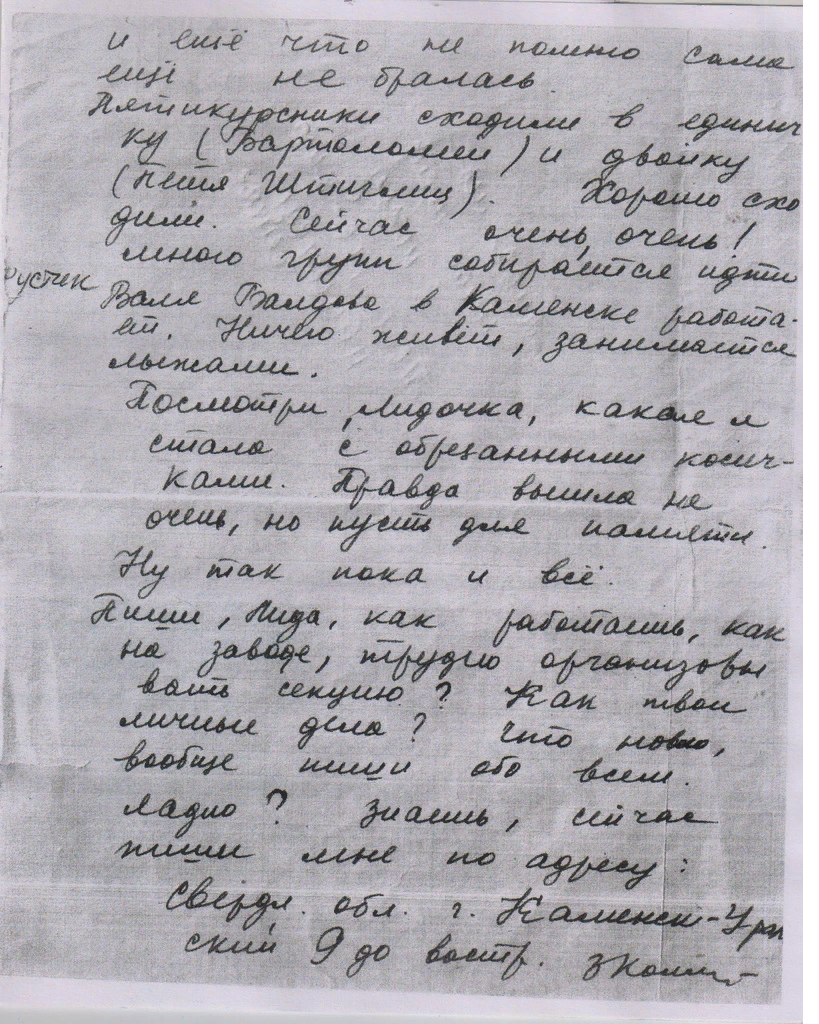 и ещё что не помню сама
ещё не бралась.
Пятикурсники сходили в единич
ку (Бартоломей) и двойку
(Петя Штиглиц). Хорошо схо
дили. Сейчас очень, очень!
много групп собирается идти
Валя Балдова в Каменске работа-
ет. Ничего живёт, занимается
лыжами.
Посмотри, Лидочка, какая я
стала с обрезанными косич-
ками. Правда вышла не
очень, но пусть для памяти.
Ну так пока и всё.
Пиши, Лида, как работаешь, как
на заводе, трудно организовы
вать секцию? Как твои
личные дела? Что нового,
вообще пиши обо всем.
Ладно? Знаешь, сейчас
пиши мне по адресу:
Свердл. обл. г. Каменск-Урал
ский До востр. ЗКолм